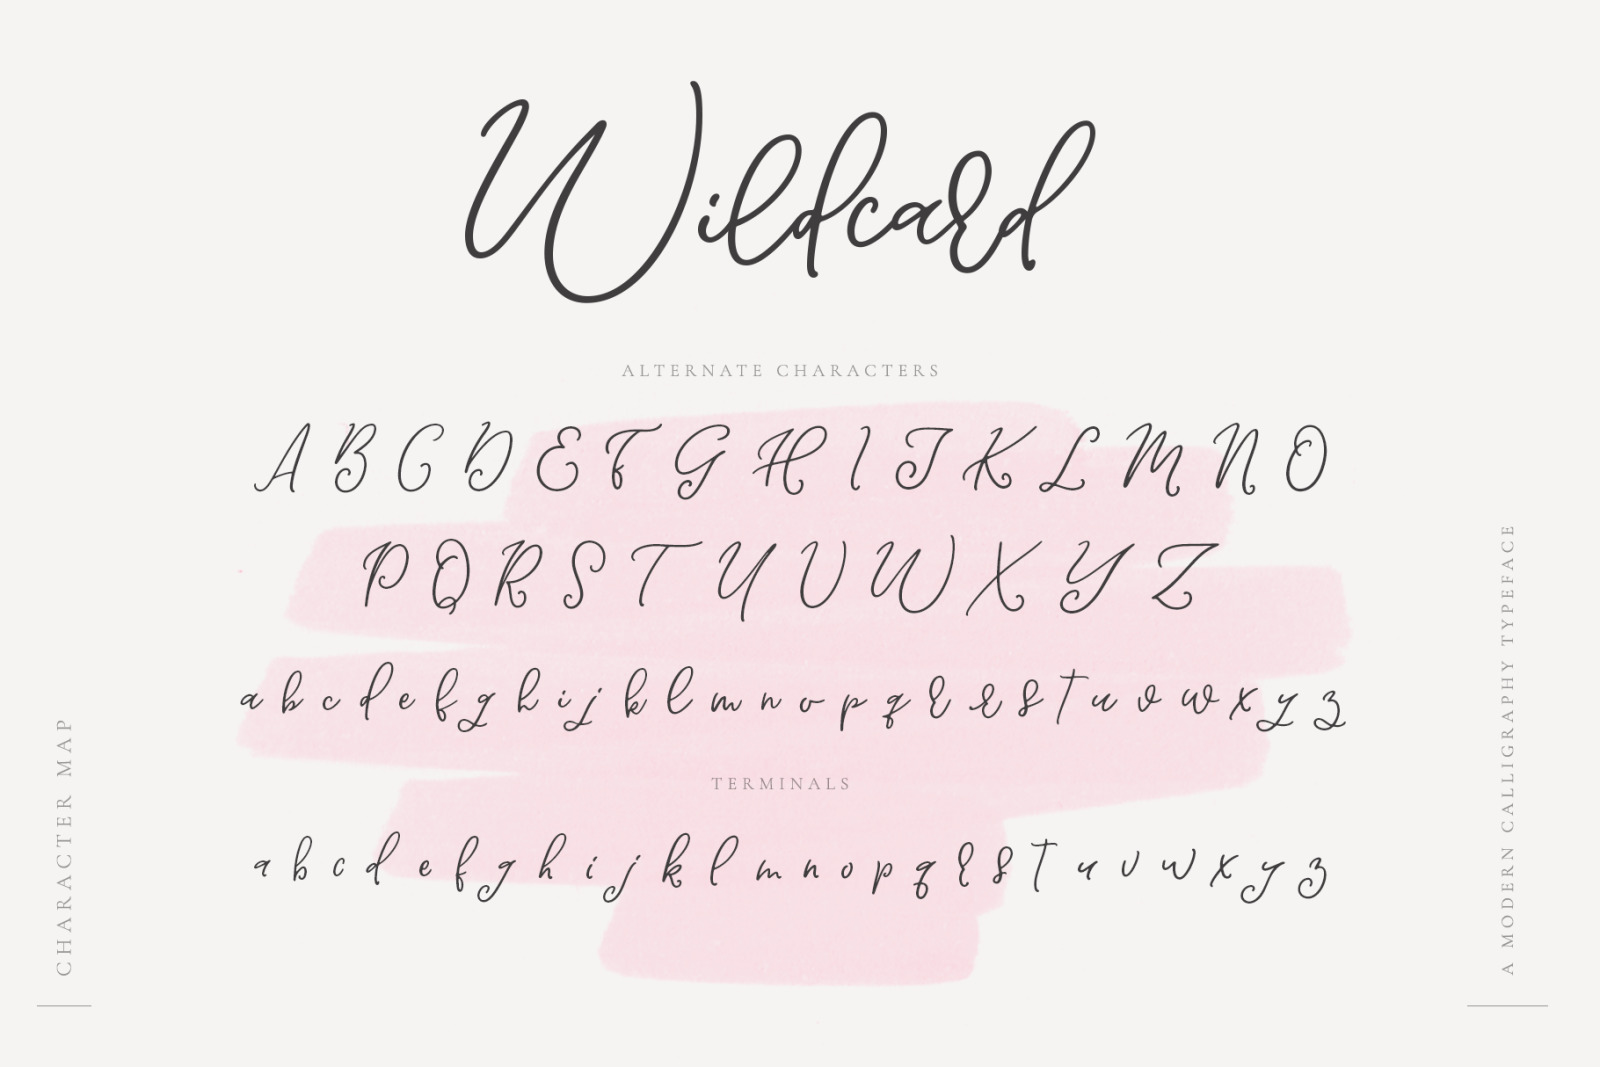 Wildcard
ALTERNATE CHARACTERS
A B C D E F G H I J K L M N O
P Q R S T U V W X Y Z
a b c d e f g h i j k l m n o p q r r s t u v w x y z
TERMINALS
a b c d e f g h i j k l m n o p q r s t u v w x y z
CHARACTER MAP
A MODERN CALLIGRAPHY TYPEFACE